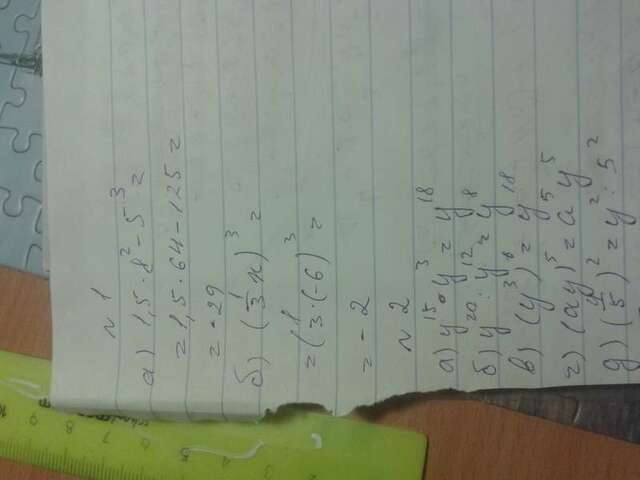 N 1
а) 1,5 · 8² - 5³ =
= 1,5 · 64 - 125 =
= -29
б) (1/3 x)³ =
= (1/3 · (-6))³ =
= - 2
N 2
а) y¹⁵ · y³ = y¹⁸
б) y²⁰ : y¹² = y⁸
в) (y³)⁶ = y¹⁸
г) (ay)⁵ = a⁵y⁵
д) (y/5)² = y² : 5²